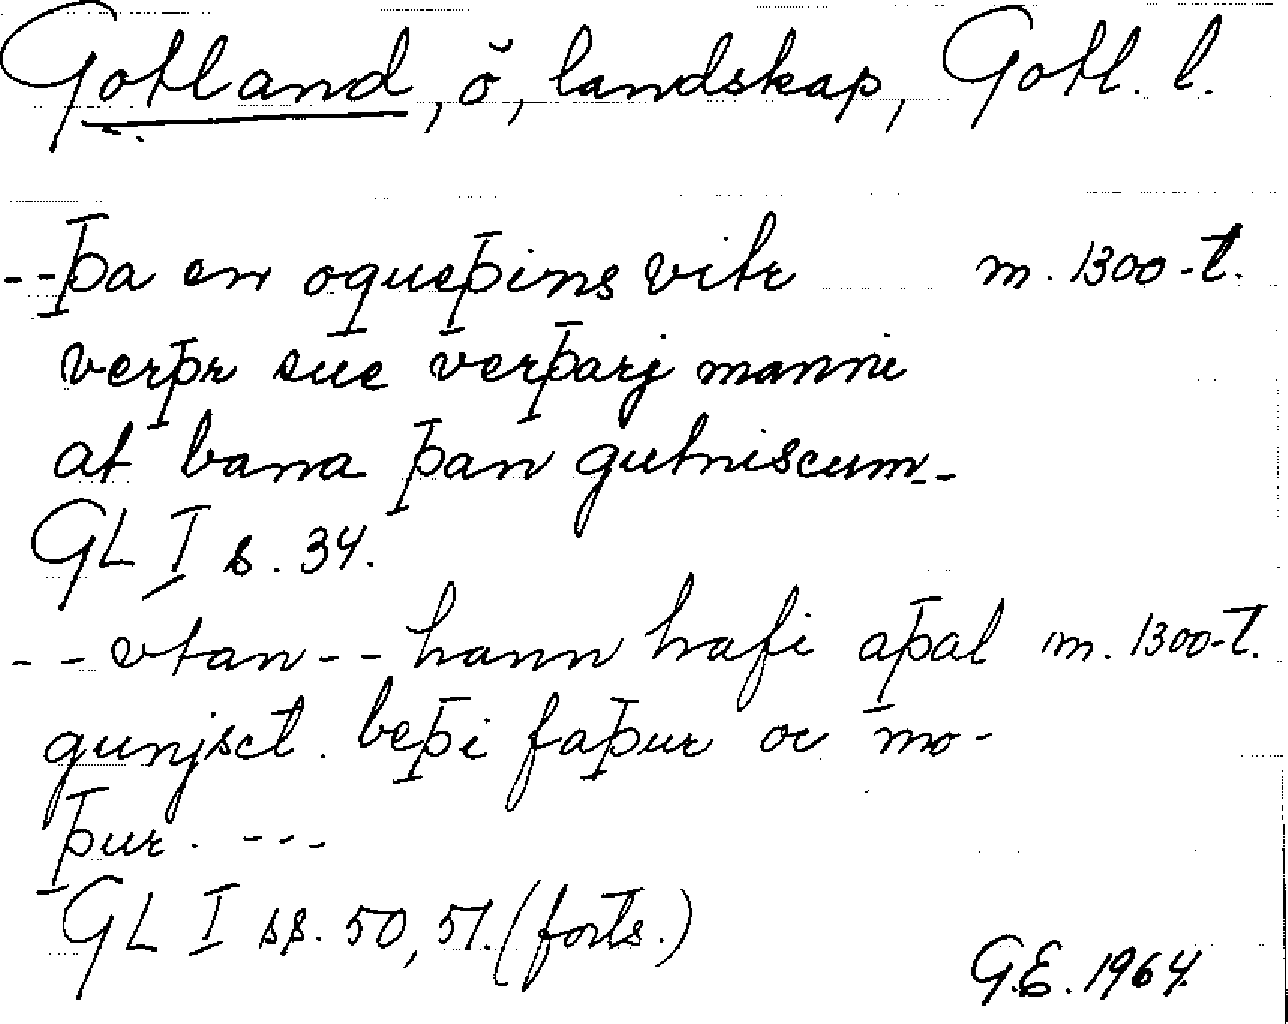 Gotland, ö, landskap, Gotl. l.
--þa en oqueþins vitr m. 1300-t.
verþr sue verþarj manni
at bana þan gutniscum--
GL I s. 34.
--vtan--hann hafi aþal m. 1300-t.
gunjsct. beþi faþur oc mo-
þur. ---
GL I ss. 50, 51. (forts.)
G.E. 1964.